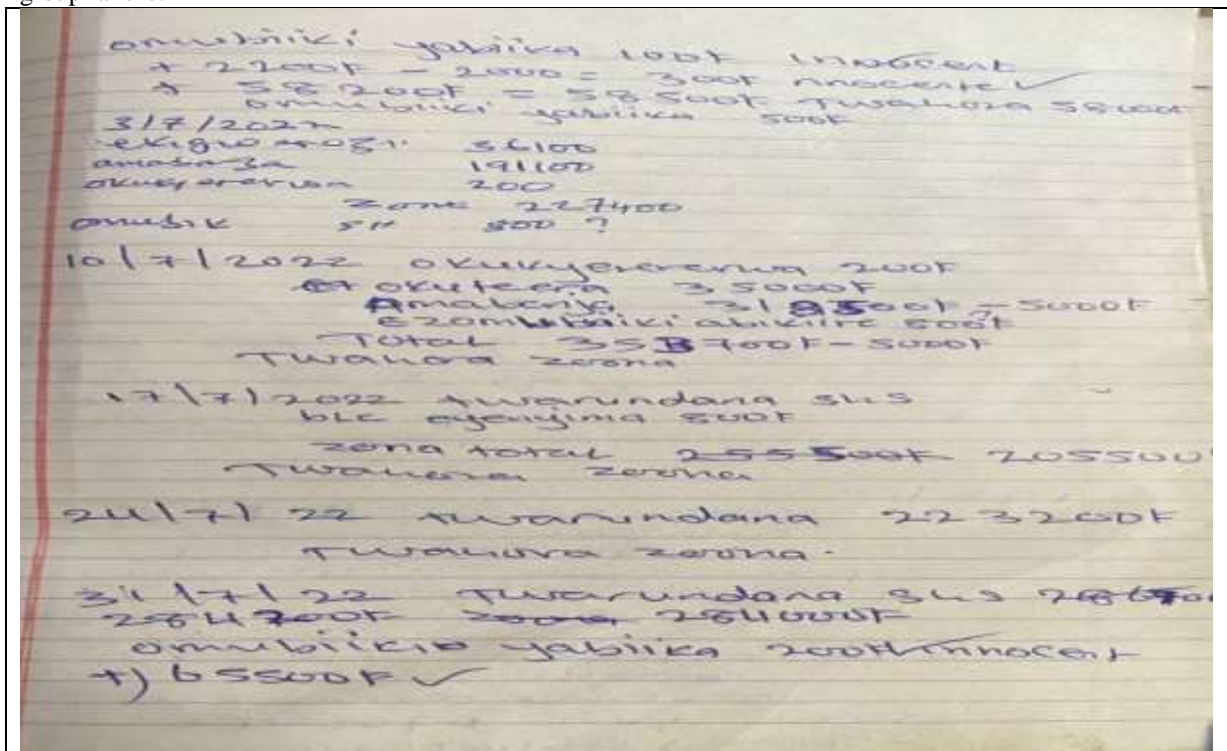 omubiiki yabiika 100F innocent
+ 2200F - 2000 = 300F nnocente ✓
+ 58200F = 58500F Twahora 58000F
omubiiki yabiika 500F
3/7/2022
ekigwo 36100
191100
okukyererwa 200
zone 227400
omubik SH 800 ?
10/7/2022 okukyerererwa 200F
okuteera 35000F
500F - 5000F
ezomubiiki abikiire 500F
Total 700F - 5000F
Twahora zoona
17/7/2022 twarundana SHS
blc eyenjima 500F
zona total 255500F 205500
Twahora zoona
24/7/22 twarundana 223200F
Twahora zoona.
31/7/22 Twarundana SHS
284200F zoona 284000F
omubiikio yabiika 200F innocent
+) 65500F ✓